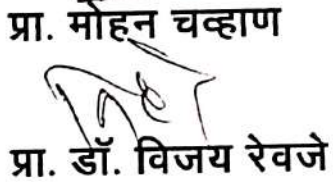 प्रा. मोहन चव्हाण
प्रा. डॉ. विजय रेवजे